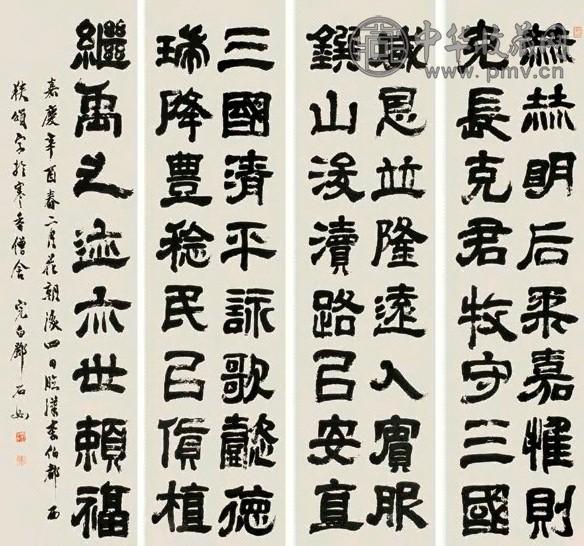 赫赫明后柔嘉惟則
克長克君牧守三國
威恩並隆遠人賓服
鐫山浚瀆路㠯安直
三國清平詠歌懿德
瑞降豐稔民㠯貨植
繼禹之迹亦世賴福
嘉慶辛酉春二月花朝後四日臨漢李伯都西
狹頌字於寒香僧舍 完白鄧石如
中华收藏网
www.pmv.cn